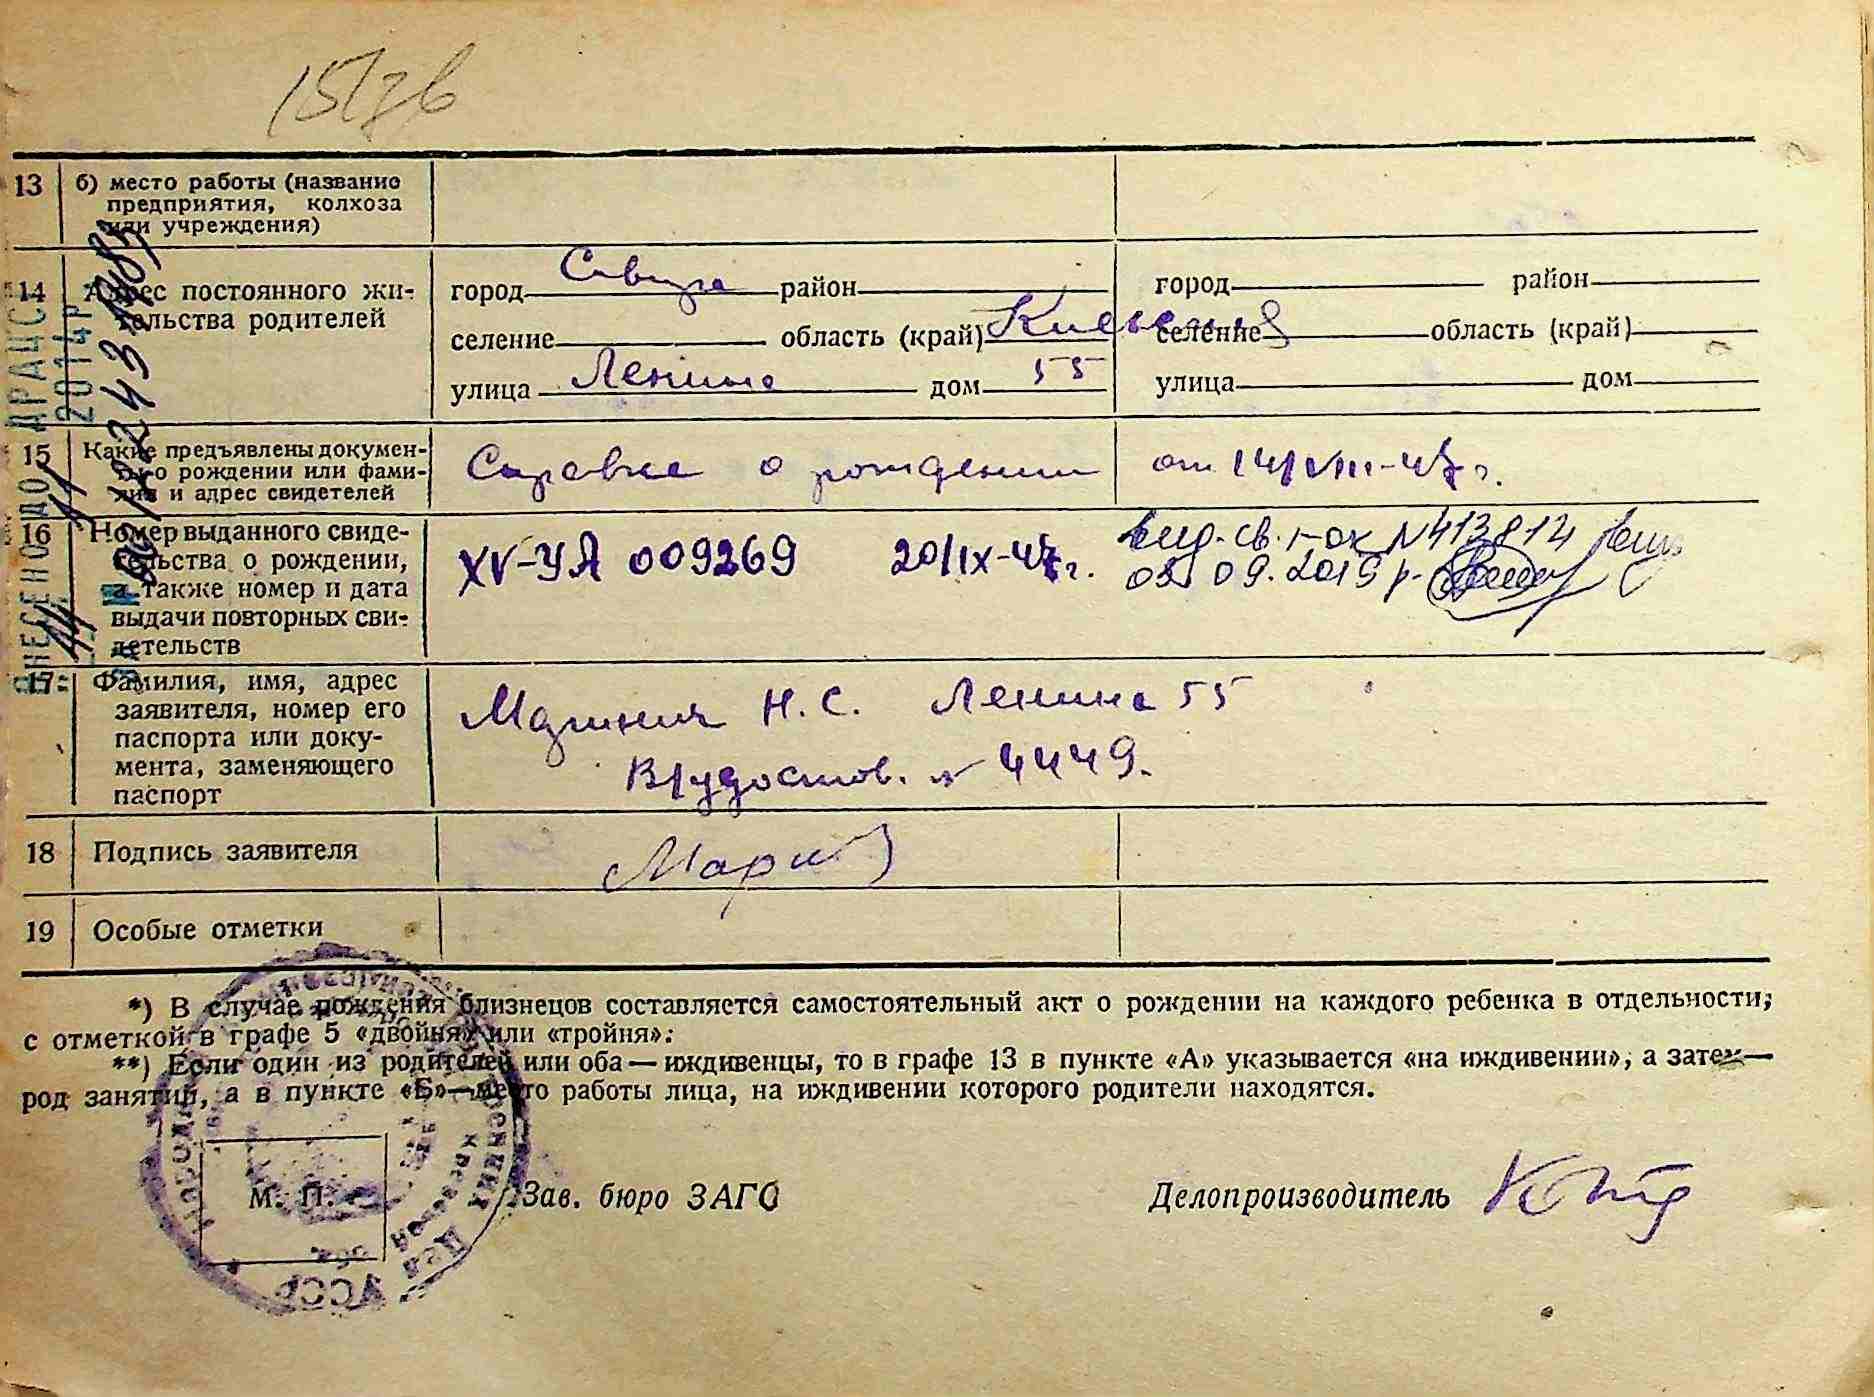 13 б) место работы (название
предприятия, колхоза
или учреждения)
14 Адрес постоянного жи-
тельства родителей
город Сквира район город район
селение область (край) Киевская селение область (край)
улица Ленина дом 55 улица дом
15 Какие предъявлены докумен-
ты о рождении или фами-
лия и адрес свидетелей
Справка о рождении от 14/VIII-47 г.
16 Номер выданного свиде-
тельства о рождении,
а также номер и дата
выдачи повторных сви-
детельств
XV-УА 009269 20/IX-47 г.
вид. св. I-ок N 413814
09. 2015 р.
17 Фамилия, имя, адрес
заявителя, номер его
паспорта или доку-
мента, заменяющего
паспорт
Н. С. Ленина 55
В/удостов. № 4449.
18 Подпись заявителя
19 Особые отметки
ВНЕСЕНО ДО ДРАЦСГ
11 2014 Р
*) В случае рождения близнецов составляется самостоятельный акт о рождении на каждого ребенка в отдельности,
с отметкой в графе 5 «двойня» или «тройня».
**) Если один из родителей или оба — иждивенцы, то в графе 13 в пункте «А» указывается «на иждивении», а затем —
род занятий, а в пункте «Б» — место работы лица, на иждивении которого родители находятся.
М. П. Зав. бюро ЗАГС Делопроизводитель